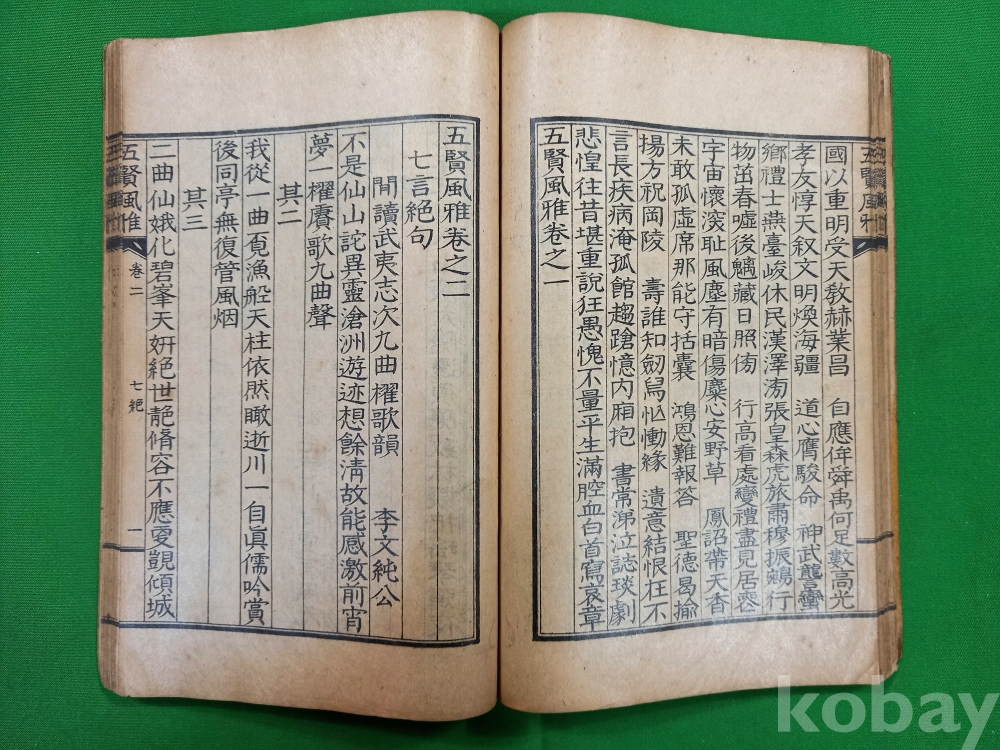 國以重明受天敎赫業昌　自應侔舜禹何足數高光
孝友惇天叙文明煥海疆　道心膺駿命　神武讋蠻
鄕禮士無臺峻休民漢澤滂張皇森虎旅肅穆振鵷行
物茁春噓後魑藏日照傍　行高看處變禮盡見居喪
宇宙懷深耻風塵有暗傷麋心安野草　鳳詔帶天香
未敢孤虛席那能守括囊　鴻恩難報答　聖德曷揄
揚方祝岡陵　壽誰知劒舃忙慟緣　遺意結恨在不
言長疾病淹孤館趨蹌憶內厢抱　書常涕泣誌琰劇
悲惶往昔堪重說狂愚愧不量平生滿腔血白首寫哀章
五賢風雅卷之一
五賢風雅
五賢風雅卷之二
七言絕句
閒讀武夷志次九曲櫂歌韻　李文純公
不是仙山詫異靈滄洲遊迹想餘淸故能感激前宵
夢一櫂賡歌九曲聲
其二
我從一曲覓漁船天柱依然瞰逝川一自眞儒吟賞
後同亭無復管風烟
其三
二曲仙娥化碧峯天姸絕世靚脩容不應更覬傾城
五賢風雅
卷二
七絕
一
kobay